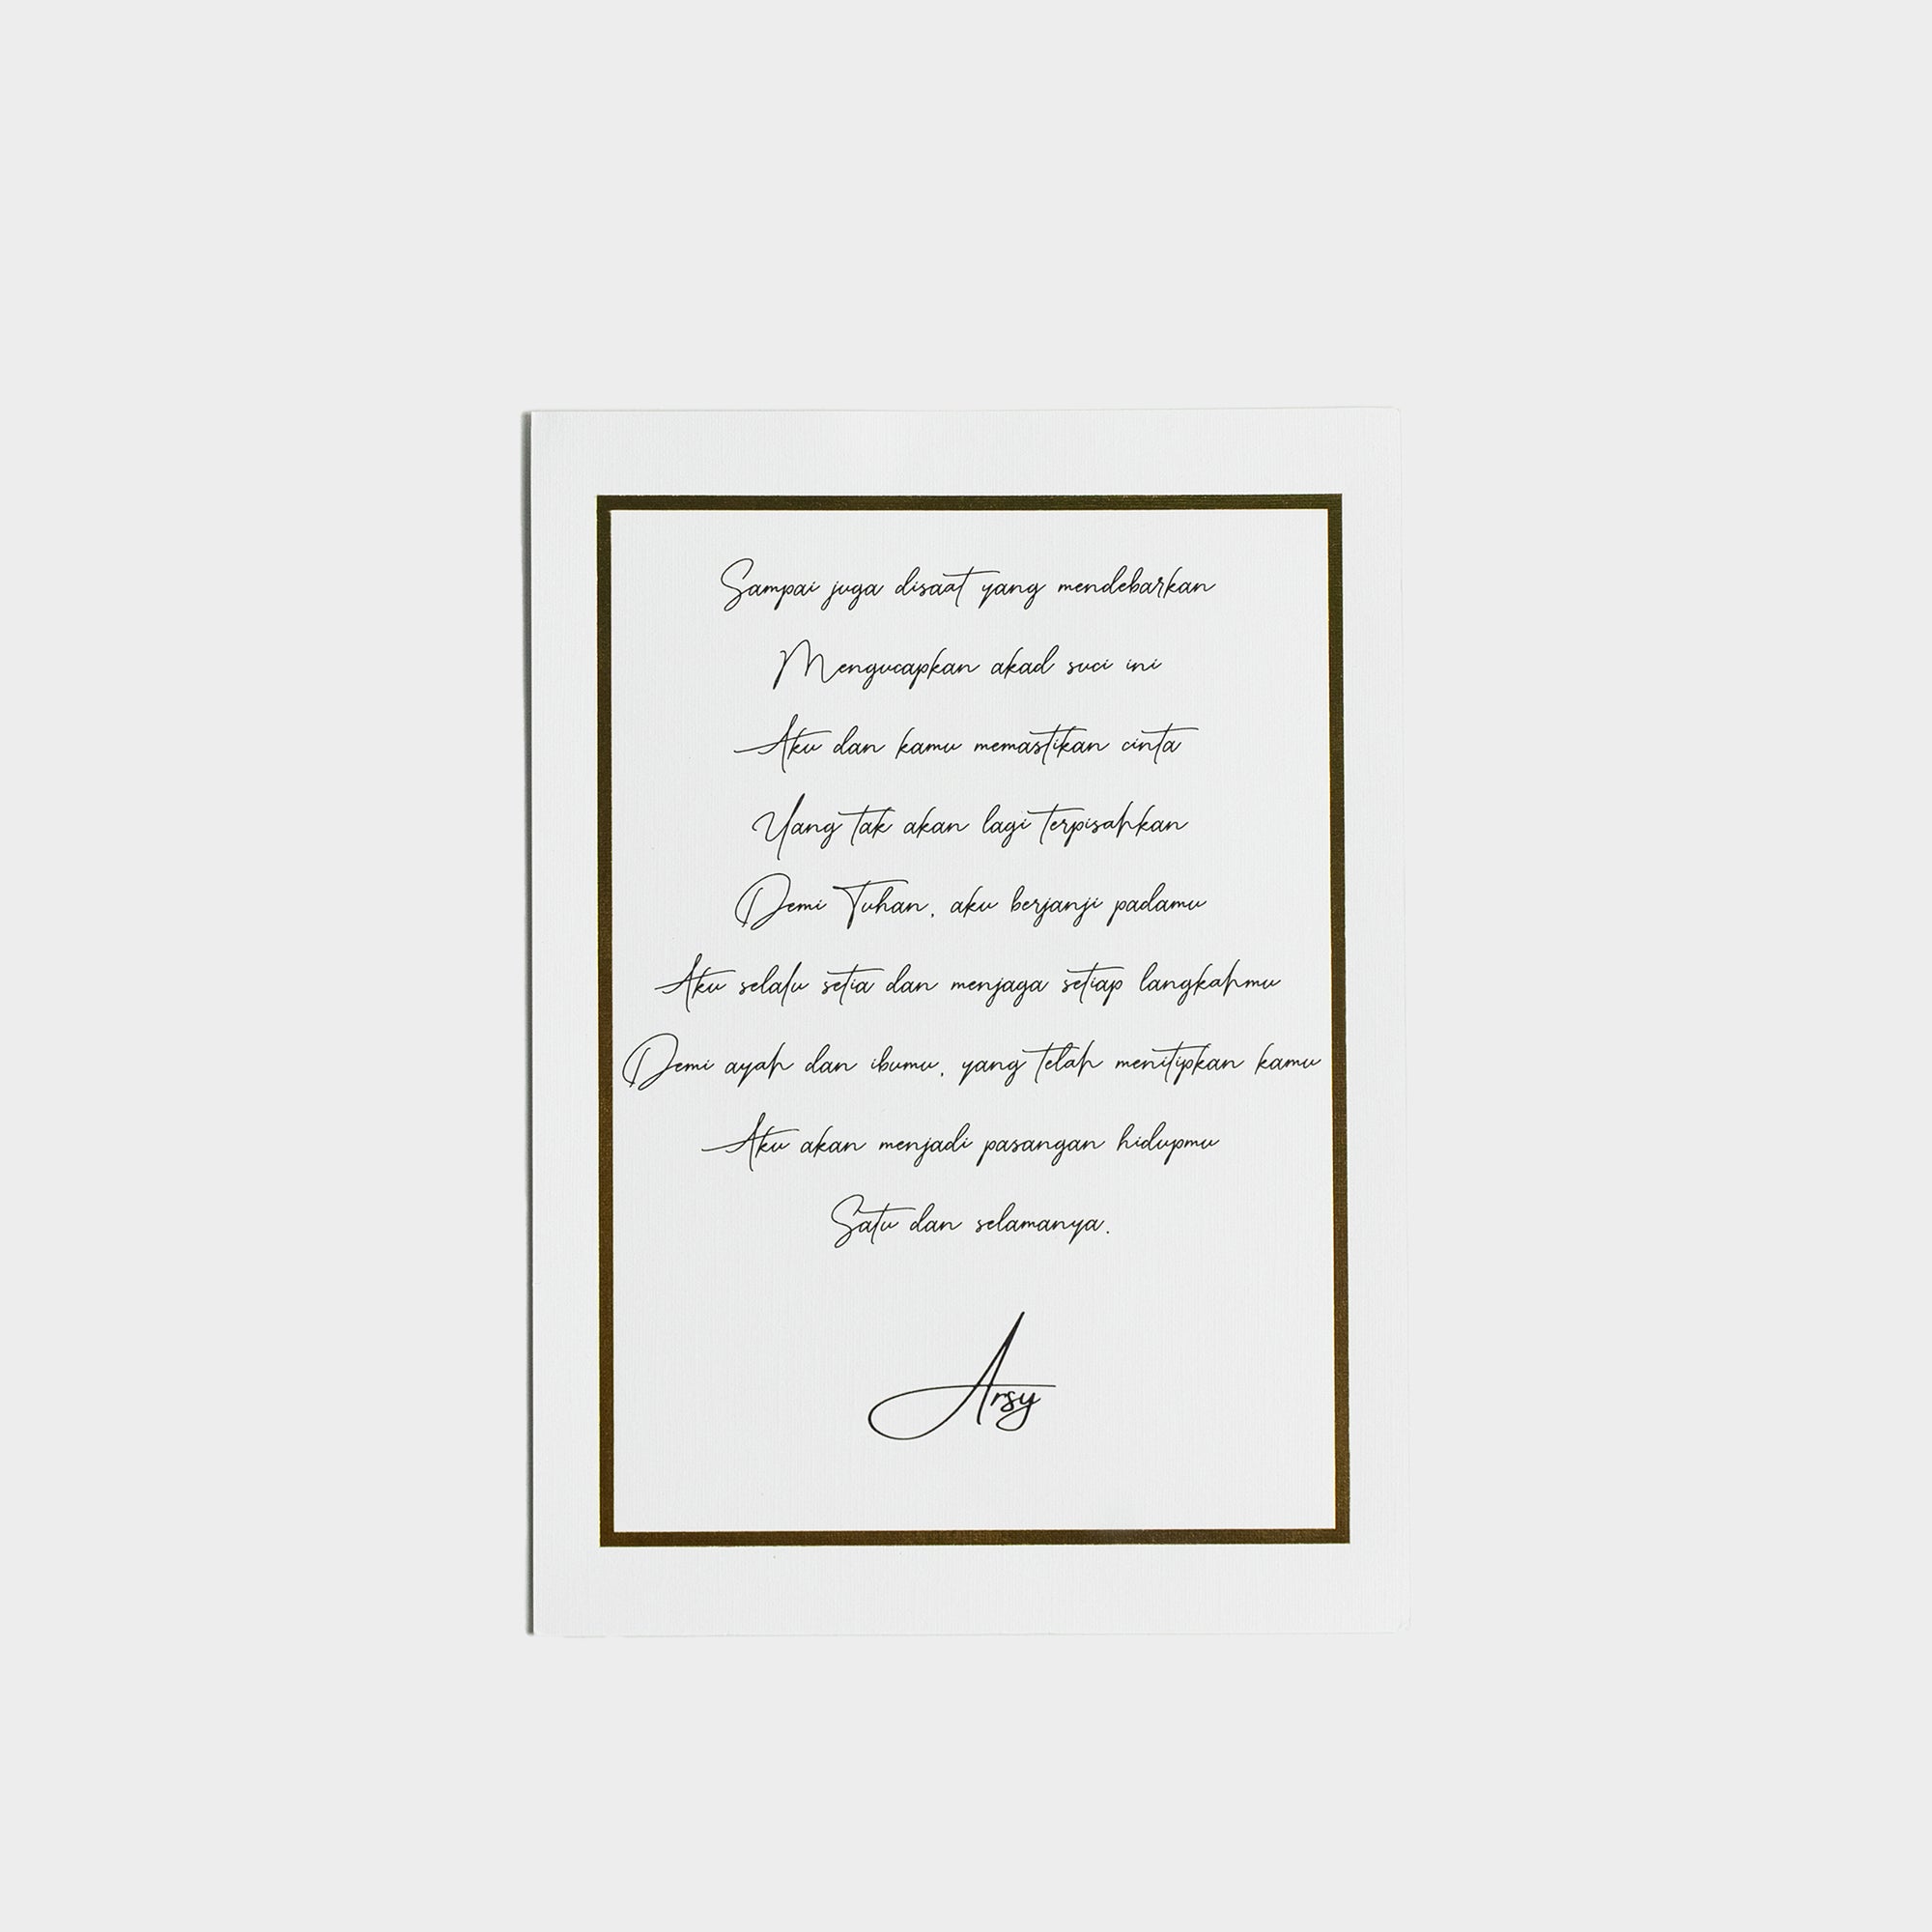 Sampai juga disaat yang mendebarkan
Mengucapkan akad suci ini
Aku dan kamu memastikan cinta
Yang tak akan lagi terpisahkan
Demi Tuhan, aku berjanji padamu
Aku selalu setia dan menjaga setiap langkahmu
Demi ayah dan ibumu, yang telah menitipkan kamu
Aku akan menjadi pasangan hidupmu
Satu dan selamanya.
Arsy